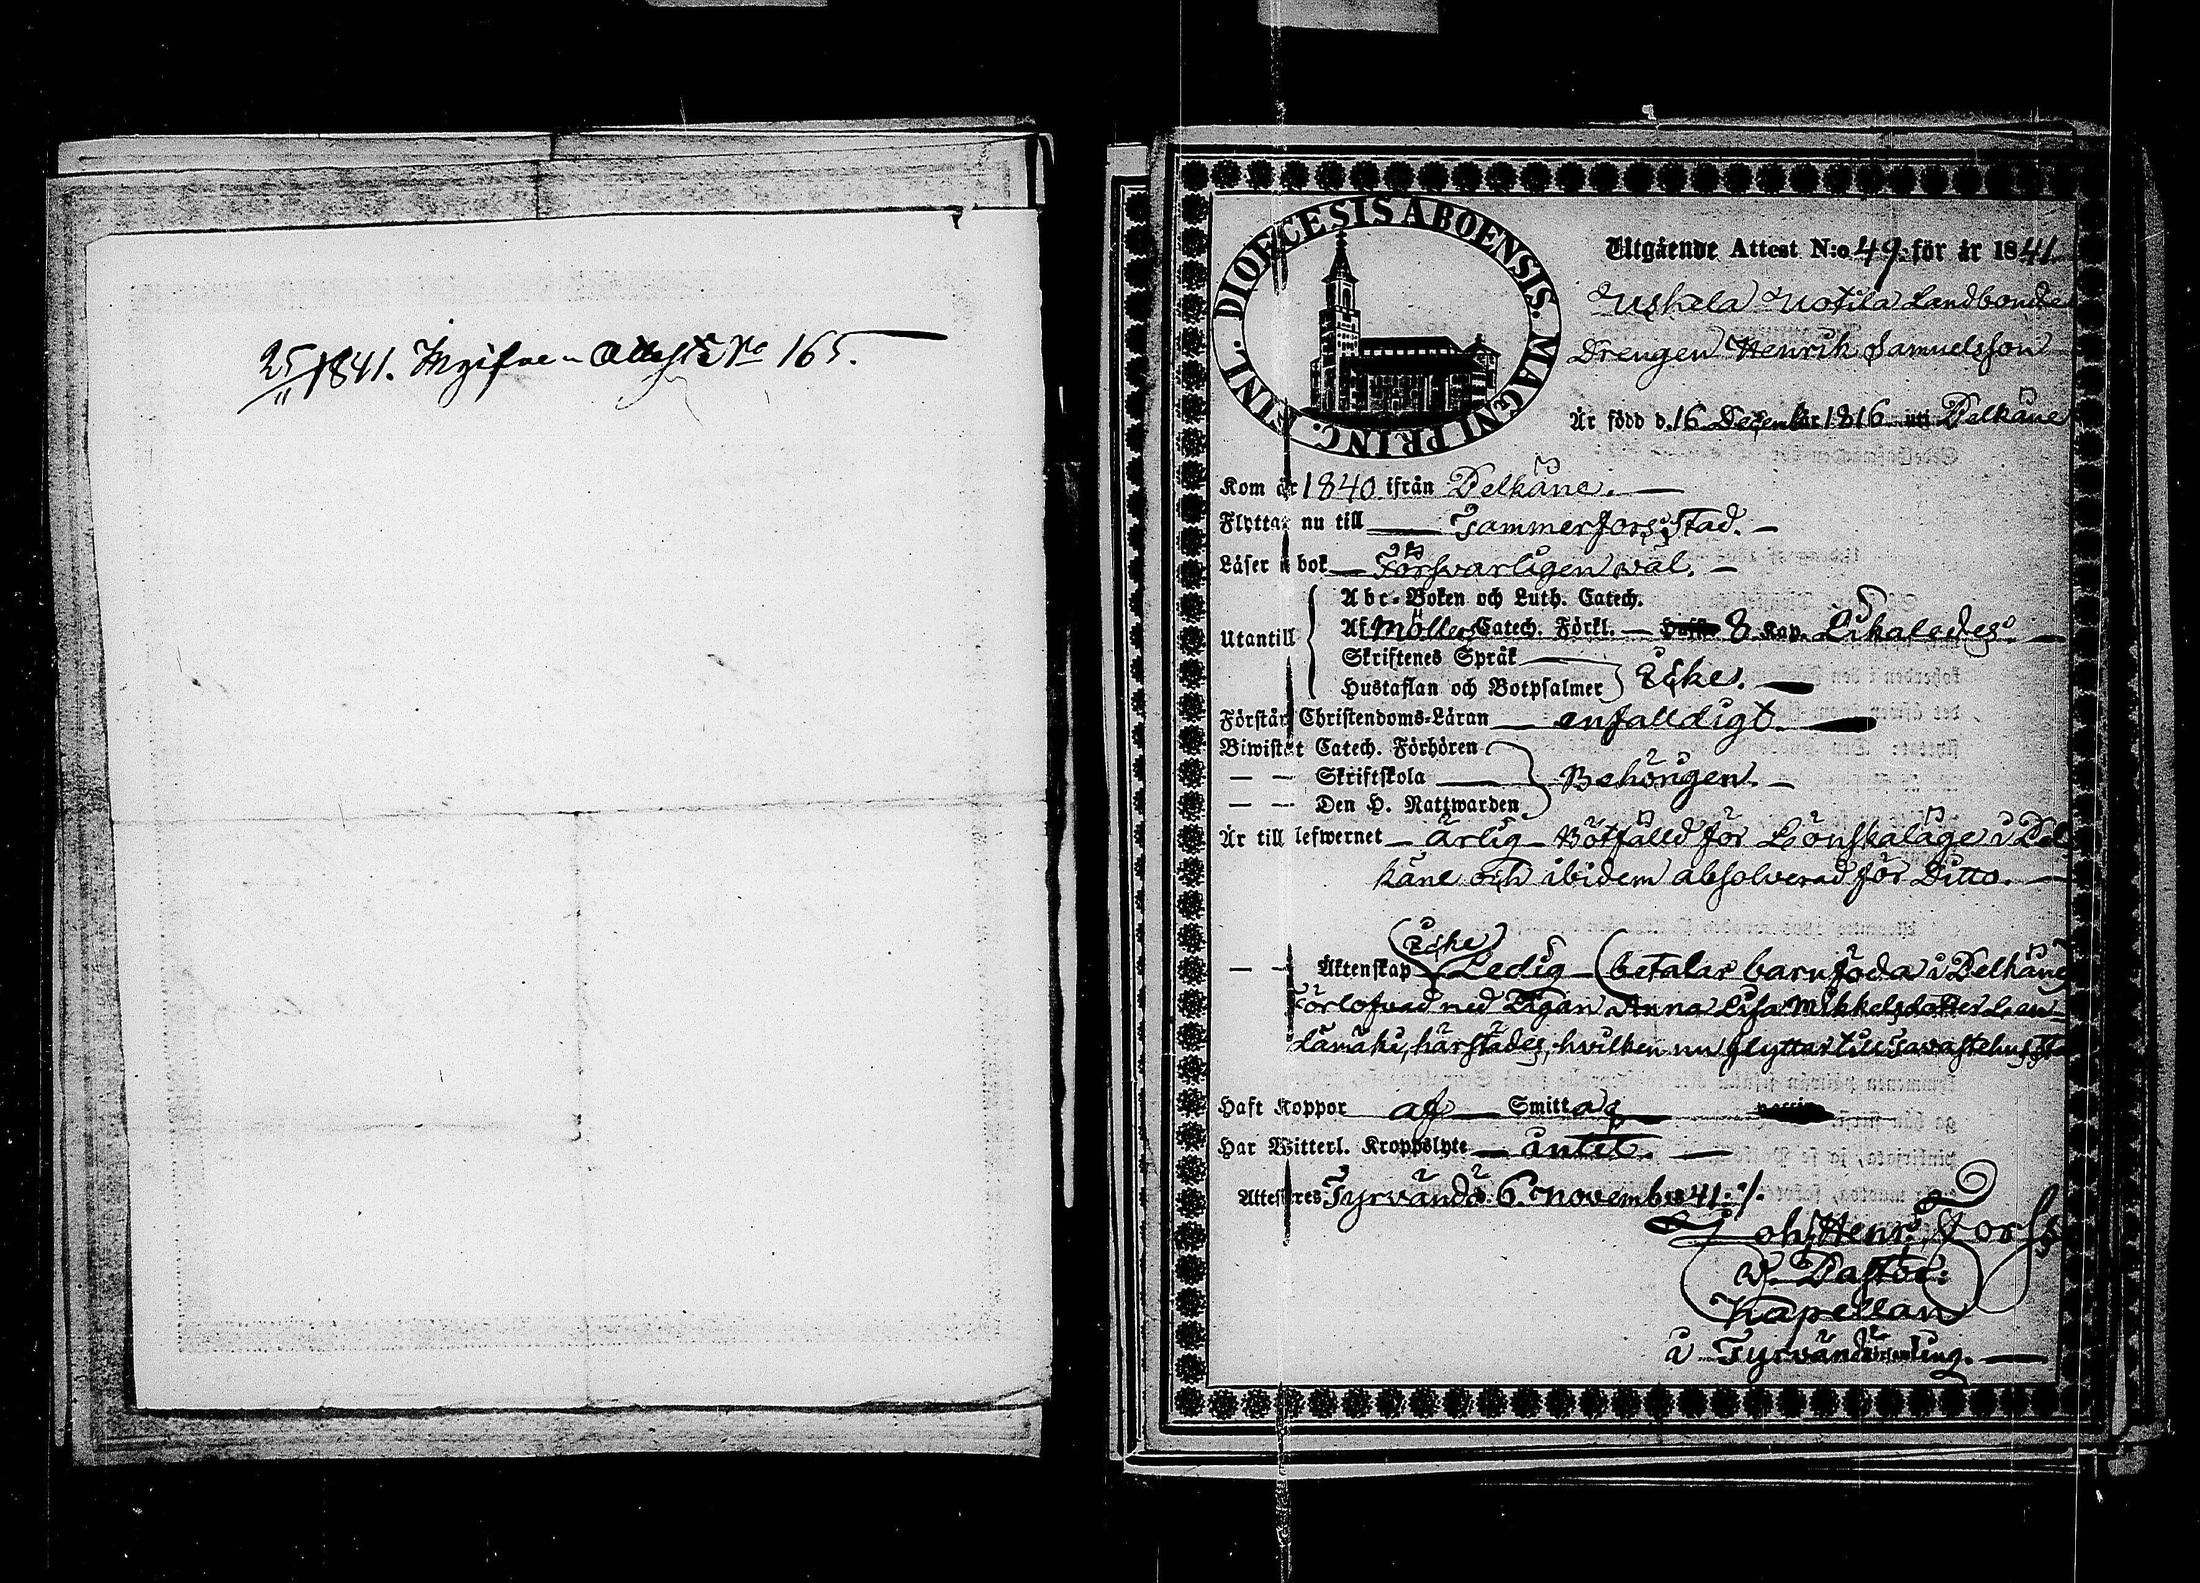 25/11 1841. Ingifven Attest No 165.
DIOECESIS ABOENSIS. MAGNI PRINC. FINL.
Utgående Attest N:o 49 för år 1841
Uskela Uotila Landbonde
Drengen Henrik Samuelsson
Är född d. 16 December 1816 uti Pelkäne
Kom år 1840 ifrån Pelkäne.
Flyttar nu till Tammerfors Stad.
Läser i bok Försvarligen väl.
Abc-Boken och Luth. Catech.
Utantill Af Möllers Catech. Förkl. 8 Kap. Likaledes.
Skriftenes Språk
Hustaflan och Botpsalmer Icke.
Förstår Christendoms-Läran enfalldigt.
Biwistat Catech. Förhören
— — Skriftskola Behörigen.
— — Den H. Nattwarden
Är till lefwernet ärlig Bötfälld för Lönskaläge i Pel
käne och ibidem absolverad för Ditto.
Icke
— — Äktenskap Ledig (betalar barnföda i Pelkäne)
Förlofvad med Pigan Anna Lisa Mikkelsdotter Lean
lämäki, härstädes, hvilken nu flyttar till Tavastehus
Haft Koppor af Smittas
Har Witterl. Kroppslyte intet.
Attesteres Tyrvändö d. 6. Novemb 1841.
Joh. Henr. Forss
V. Pastor.
Kapellan
i Tyrvändö